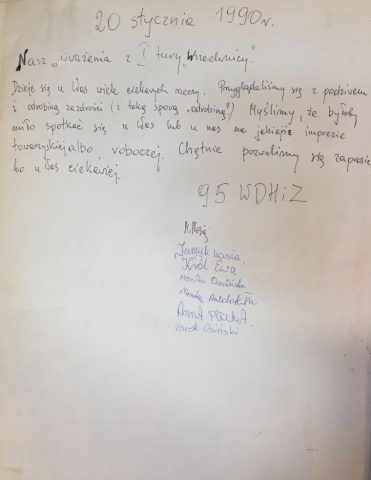 20 stycznia 1990 r.
Nasz „uważenia z I tury „Wszechnicy".
Dzieje się u Was wiele ciekawych rzeczy. Przyglądaliśmy się z podziwem
i odrobiną zazdrości (z taką sporą „odrobiną"!) Myślimy, że byłoby
miło spotkać się u Was lub u nas na jakiejś imprezie
towarzyskiej albo roboczej. Chętnie pozwolimy się zaprosić
bo u Was ciekawiej.
95 WDHiZ
Kasia
Król Ewa
Monika
Monika
Anna
Jarek Osiński